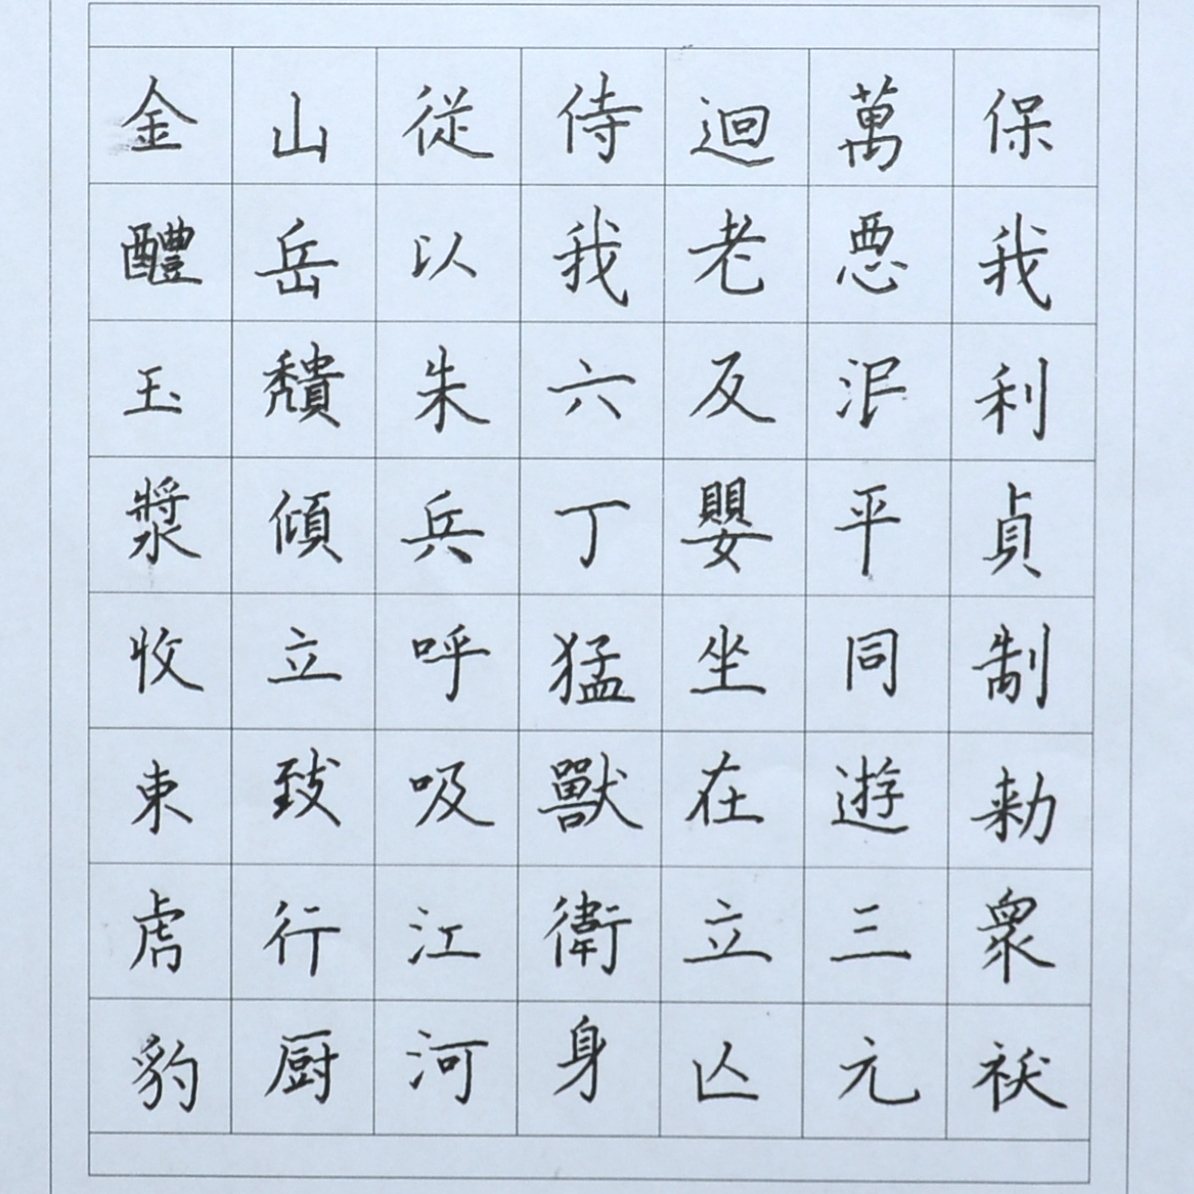 保我利貞制勑衆祅
萬惡泯平同遊三元
迴老反嬰坐在立亡
侍我六丁猛獸衛身
從以朱兵呼吸江河
山岳穨傾立致行厨
金醴玉漿收束虎豹